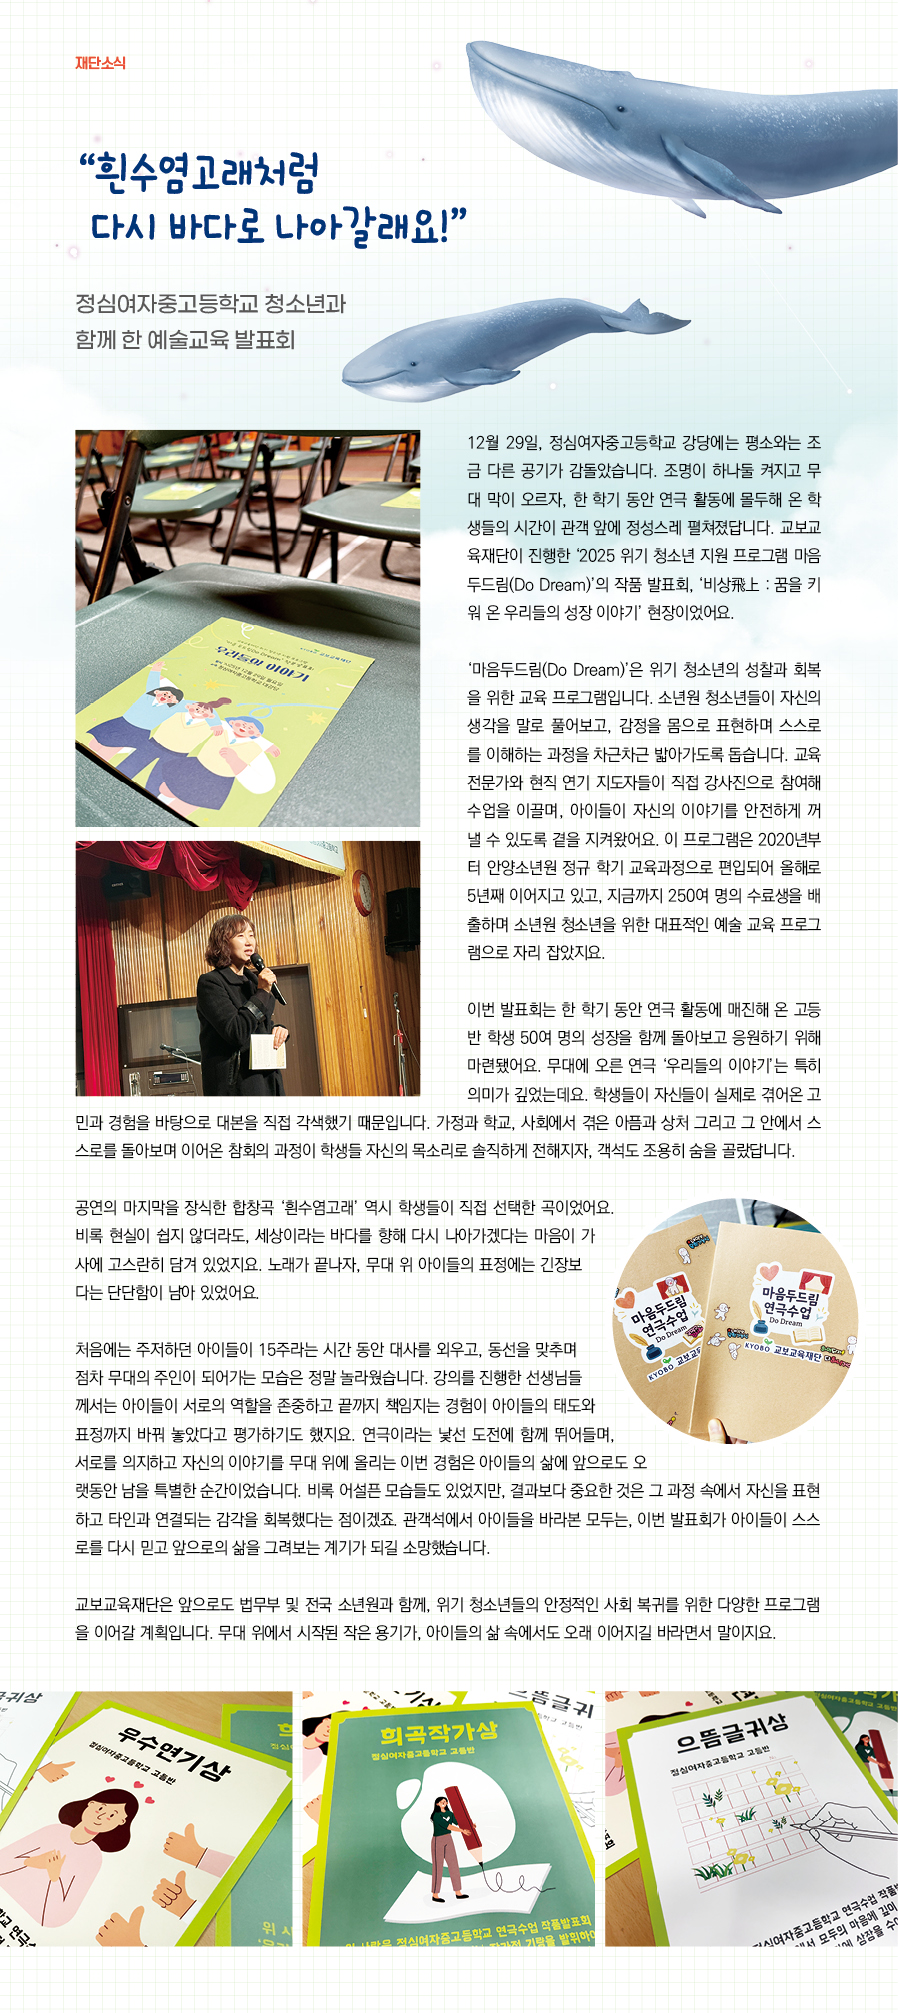 재단소식
“흰수염고래처럼
다시 바다로 나아갈래요!”
정심여자중고등학교 청소년과
함께 한 예술교육 발표회
12월 29일, 정심여자중고등학교 강당에는 평소와는 조
금 다른 공기가 감돌았습니다. 조명이 하나둘 켜지고 무
대 막이 오르자, 한 학기 동안 연극 활동에 몰두해 온 학
생들의 시간이 관객 앞에 정성스레 펼쳐졌답니다. 교보교
육재단이 진행한 ‘2025 위기 청소년 지원 프로그램 마음
두드림(Do Dream)’의 작품 발표회, ‘비상飛上 : 꿈을 키
워 온 우리들의 성장 이야기’ 현장이었어요.
‘마음두드림(Do Dream)’은 위기 청소년의 성찰과 회복
을 위한 교육 프로그램입니다. 소년원 청소년들이 자신의
생각을 말로 풀어보고, 감정을 몸으로 표현하며 스스로
를 이해하는 과정을 차근차근 밟아가도록 돕습니다. 교육
전문가와 현직 연기 지도자들이 직접 강사진으로 참여해
수업을 이끌며, 아이들이 자신의 이야기를 안전하게 꺼
낼 수 있도록 곁을 지켜왔어요. 이 프로그램은 2020년부
터 안양소년원 정규 학기 교육과정으로 편입되어 올해로
5년째 이어지고 있고, 지금까지 250여 명의 수료생을 배
출하며 소년원 청소년을 위한 대표적인 예술 교육 프로그
램으로 자리 잡았지요.
이번 발표회는 한 학기 동안 연극 활동에 매진해 온 고등
반 학생 50여 명의 성장을 함께 돌아보고 응원하기 위해
마련됐어요. 무대에 오른 연극 ‘우리들의 이야기’는 특히
의미가 깊었는데요. 학생들이 자신들이 실제로 겪어온 고
민과 경험을 바탕으로 대본을 직접 각색했기 때문입니다. 가정과 학교, 사회에서 겪은 아픔과 상처 그리고 그 안에서 스
스로를 돌아보며 이어온 참회의 과정이 학생들 자신의 목소리로 솔직하게 전해지자, 객석도 조용히 숨을 골랐답니다.
공연의 마지막을 장식한 합창곡 ‘흰수염고래’ 역시 학생들이 직접 선택한 곡이었어요.
비록 현실이 쉽지 않더라도, 세상이라는 바다를 향해 다시 나아가겠다는 마음이 가
사에 고스란히 담겨 있었지요. 노래가 끝나자, 무대 위 아이들의 표정에는 긴장보
다는 단단함이 남아 있었어요.
처음에는 주저하던 아이들이 15주라는 시간 동안 대사를 외우고, 동선을 맞추며
점차 무대의 주인이 되어가는 모습은 정말 놀라웠습니다. 강의를 진행한 선생님들
께서는 아이들이 서로의 역할을 존중하고 끝까지 책임지는 경험이 아이들의 태도와
표정까지 바꿔 놓았다고 평가하기도 했지요. 연극이라는 낯선 도전에 함께 뛰어들며,
서로를 의지하고 자신의 이야기를 무대 위에 올리는 이번 경험은 아이들의 삶에 앞으로도 오
랫동안 남을 특별한 순간이었습니다. 비록 어설픈 모습들도 있었지만, 결과보다 중요한 것은 그 과정 속에서 자신을 표현
하고 타인과 연결되는 감각을 회복했다는 점이겠죠. 관객석에서 아이들을 바라본 모두는, 이번 발표회가 아이들이 스스
로를 다시 믿고 앞으로의 삶을 그려보는 계기가 되길 소망했습니다.
교보교육재단은 앞으로도 법무부 및 전국 소년원과 함께, 위기 청소년들의 안정적인 사회 복귀를 위한 다양한 프로그램
을 이어갈 계획입니다. 무대 위에서 시작된 작은 용기가, 아이들의 삶 속에서도 오래 이어지길 바라면서 말이지요.
교보교육재단
우리들의 이야기
마음두드림
연극수업
Do Dream
KYOBO 교보교
마음두드림
연극수업
Do Dream
KYOBO 교보교육재단
우수연기상
정심여자중고등학교 고등반
희곡작가상
정심여자중고등학교 고등반
위 사람은 정심여자중고등학교 연극수업 작품발표회
으뜸글귀상
정심여자중고등학교 고등반
정심여자중고등학교 연극수업 작품발